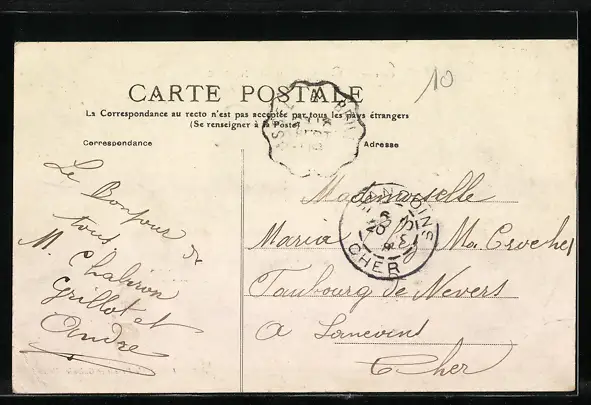 10
CARTE POSTALE
La Correspondance au recto n'est pas acceptée par tous les pays étrangers
(Se renseigner à la Poste)
Correspondance
Adresse
Le Bonjour de
tous
M. Chaliron
Grillot et
Andre
Mademoiselle
Maria Ma. Crochet
Faubourg de Nevers
a Sancoins
Cher
SANCOINS
CHER